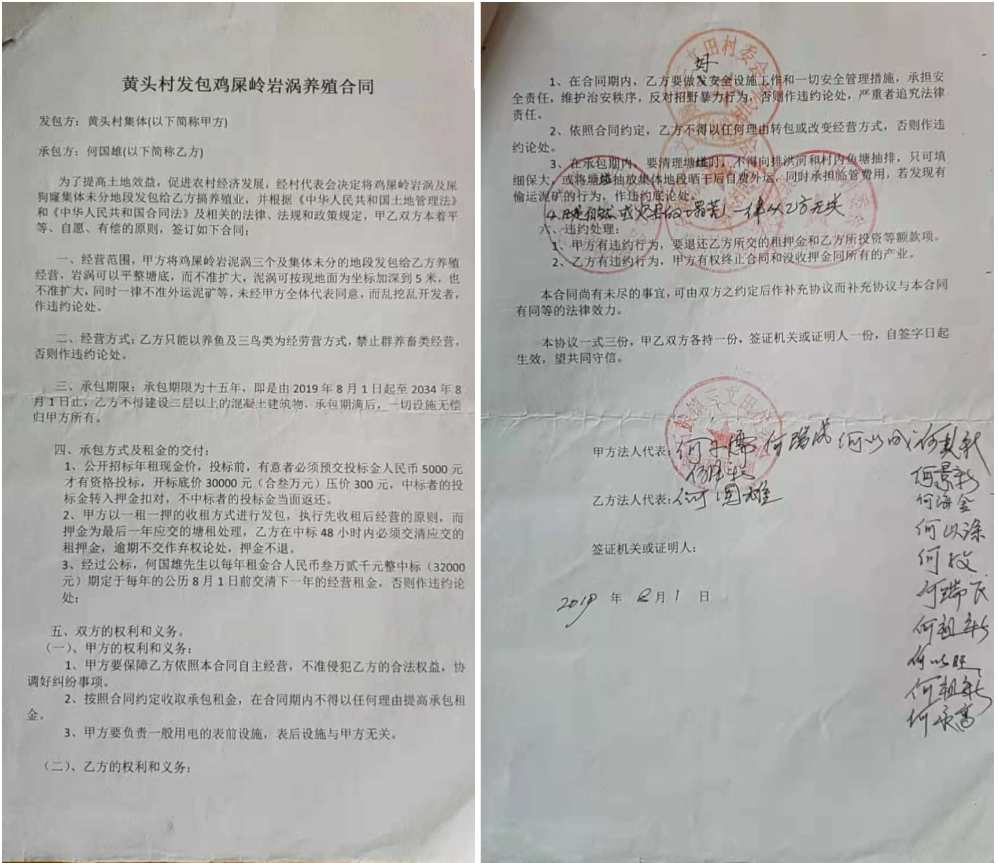 黄头村发包鸡屎岭岩涡养殖合同
发包方：黄头村集体(以下简称甲方)
承包方：何国雄(以下简称乙方)
为了提高土地效益，促进农村经济发展，经村代表会决定将鸡屎岭岩涡及屎
狗窿集体未分地段发包给乙方搞养殖业，并根据《中华人民共和国土地管理法》
和《中华人民共和国合同法》及相关的法律、法规和政策规定，甲乙双方本着平
等、自愿、有偿的原则，签订如下合同：
一、经营范围，甲方将鸡屎岭岩泥涡三个及集体未分的地段发包给乙方养殖
经营，岩涡可以平整塘底，而不准扩大，泥涡可按现地面为坐标加深到 5 米，也
不准扩大，同时一律不准外运泥矿等，未经甲方全体代表同意，而乱挖乱开发者，
作违约论处。
二、经营方式：乙方只能以养鱼及三鸟类为经劳营方式，禁止群养畜类经营，
否则作违约论处。
三、承包期限：承包期限为十五年，即是由 2019 年 8 月 1 日起至 2034 年 8
月 1 日止，乙方不得建设三层以上的混凝土建筑物，承包期满后，一切设施无偿
归甲方所有。
四、承包方式及租金的交付：
1、公开招标年租现金价，投标前，有意者必须预交投标金人民币 5000 元
才有资格投标，开标底价 30000 元（合叁万元）压价 300 元，中标者的投
标金转入押金扣对，不中标者的投标金当面返还。
2、甲方以一租一押的收租方式进行发包，执行先收租后经营的原则，而
押金为最后一年应交的塘租处理，乙方在中标 48 小时内必须交清应交的
租押金，逾期不交作弃权论处，押金不退。
3、经过公标，何国雄先生以每年租金合人民币叁万贰千元整中标（32000
元）期定于每年的公历 8 月 1 日前交清下一年的经营租金，否则作违约论
处：
五、双方的权利和义务。
（一）、甲方的权利和义务：
1、甲方要保障乙方依照本合同自主经营，不准侵犯乙方的合法权益，协
调好纠纷事项。
2、按照合同约定收取承包租金，在合同期内不得以任何理由提高承包租
金。
3、甲方要负责一般用电的表前设施，表后设施与甲方无关。
（二）、乙方的权利和义务：
好
1、在合同期内，乙方要做安全设施工作和一切安全管理措施，承担安
全责任，维护治安秩序，反对招野暴力行为，否则作违约论处，严重者追究法律
责任。
2、依照合同约定，乙方不得以任何理由转包或改变经营方式，否则作违
约论处。
3、在承包期内，要清理塘时，不得向排洪河和村内鱼塘抽排，只可填
细保大，或将塘抽放集体地段晒干后自费外运，同时承担监管费用，若发现有
偷运泥矿的行为，作违约底论处。
4. 一律以乙方无关
六、违约处理：
1、甲方有违约行为，要退还乙方所交的租押金和乙方所投资等额款项。
2、乙方有违约行为，甲方有权终止合同和没收押金同所有的产业。
本合同尚有未尽的事宜，可由双方之约定后作补充协议而补充协议与本合同
有同等的法律效力。
本协议一式三份，甲乙双方各持一份，签证机关或证明人一份，自签字日起
生效，望共同守信。
甲方法人代表：
乙方法人代表：何国雄
签证机关或证明人：
2019 年 8 月 1 日
何景新
何海金
何以深
何瑞民
何祖新
何以旺
何祖新
何永高